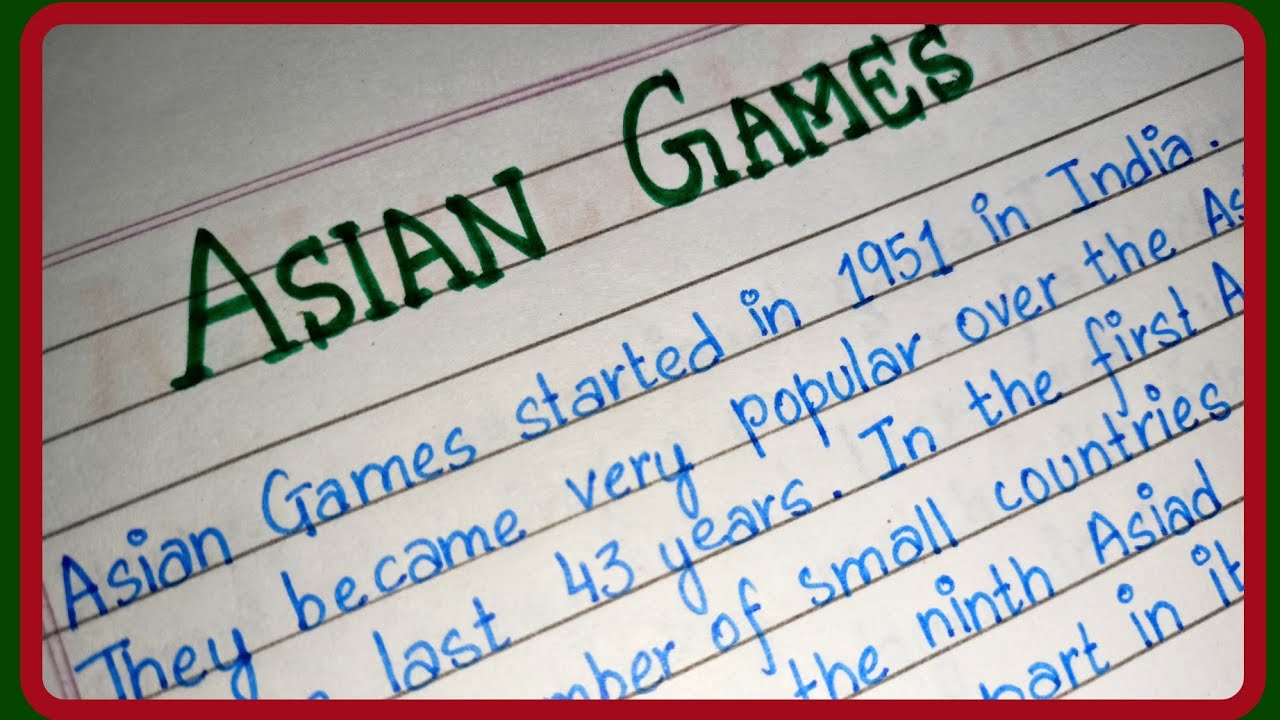 ASIAN GAMES
Asian Games started in 1951 in India.
They became very popular over the
last 43 years. In the first
of small countries
the ninth Asiad
part in it